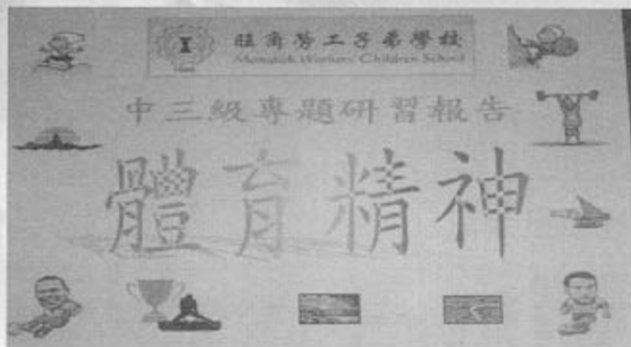 旺角勞工子弟學校
Mongkok Workers' Children School
中三級專題研習報告
體育精神